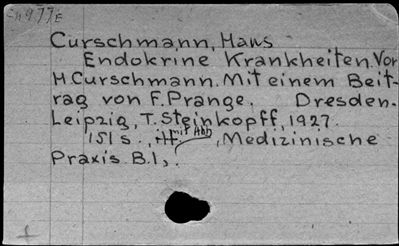 Curschmann, Hans
Endokrine Krankheiten. Von
H Curschmann. Mit einem Beit-
rag von F. Prange. Dresden.
Leipzig, T. Steinkopff, 1927.
mit Abb
151 s., , Medizinische
Praxis. B.1,.